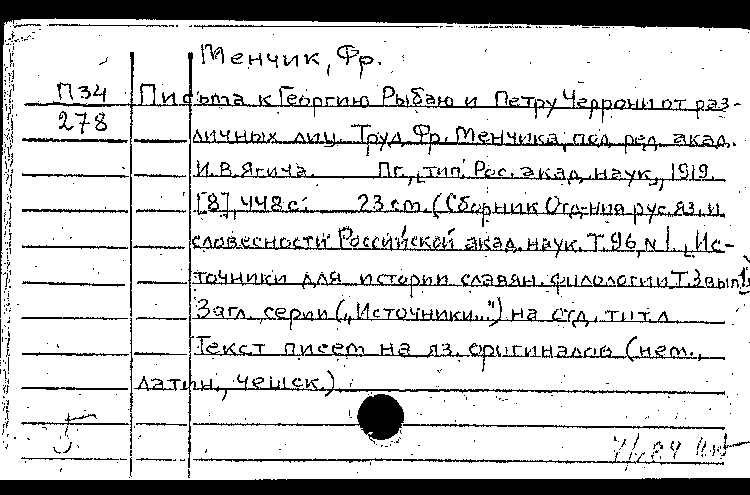 Менчик, Фр.
П34 Письма к Георгию Рыбаю и Петру Черрони от раз-
278 личных лиц. Труд Фр. Менчика, под ред. акад.
И.В. Ягича. Пг., [тип. Рос. акад. наук], 1919.
[8], 448 с. 23 см. (Сборник Отд-ния рус. яз. и
словесности Российской акад. наук. Т.96, №1. [Ис-
точники для истории славян. филологии. Т.3 вып.
Загл. серии („Источники...") на отд. тит. л
Текст писем на яз. оригиналов (нем.,
латин., чешск.)
5